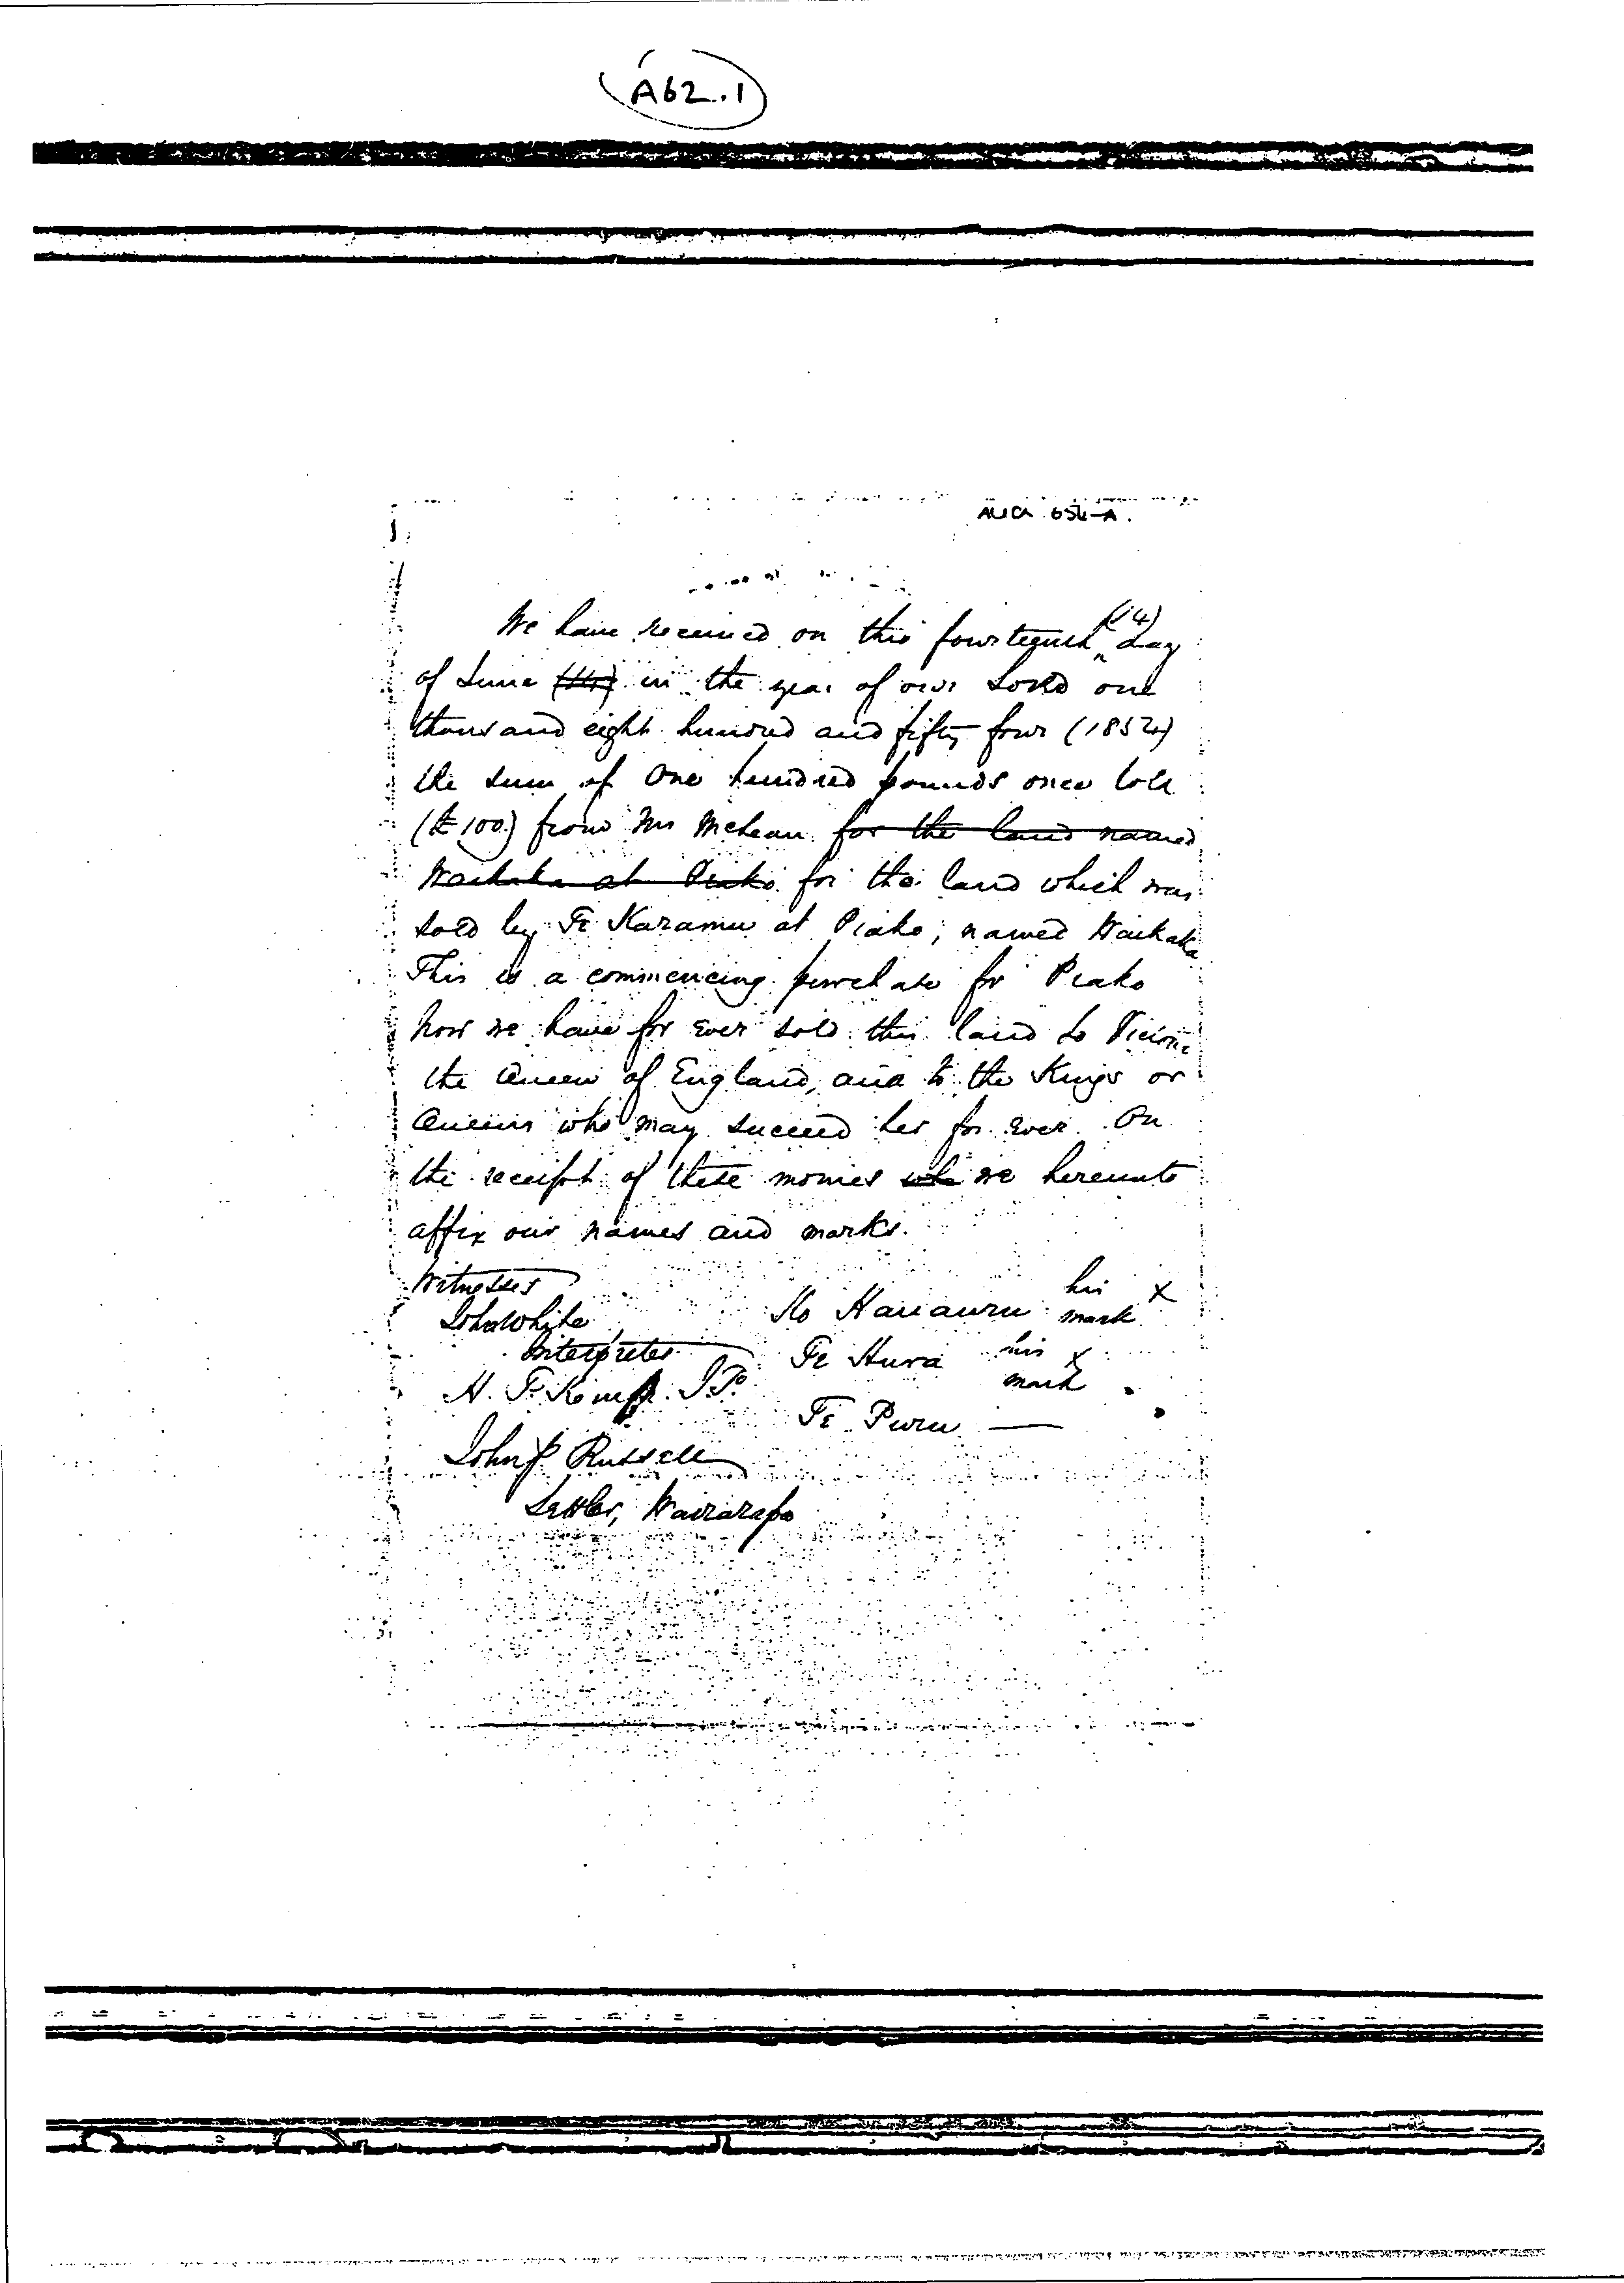 A62.1
AUCK 654-A.
We have received on this fourteenth (14) day
of June (14) in the year of our Lord one
thousand eight hundred and fifty four (1854)
the sum of One hundred pounds once told
(£100.) from Mr McLean for the land named
Waikaka at Piako for the land which was
sold by Te Karamu at Piako; named Waikaka
This is a commencing purchase for Piako
Now we have for ever sold this land to Victoria
the Queen of England, and to the Kings or
Queens who may succeed her for ever. On
the receipt of these monies we hereunto
affix our names and marks.
Witnesses
Ko Hauauru his X mark
John White
Interpreter
Te Hura his X mark
H. T. Kemp. J.P.
Te Puru —
John P Russell
Settler, Wairarapa